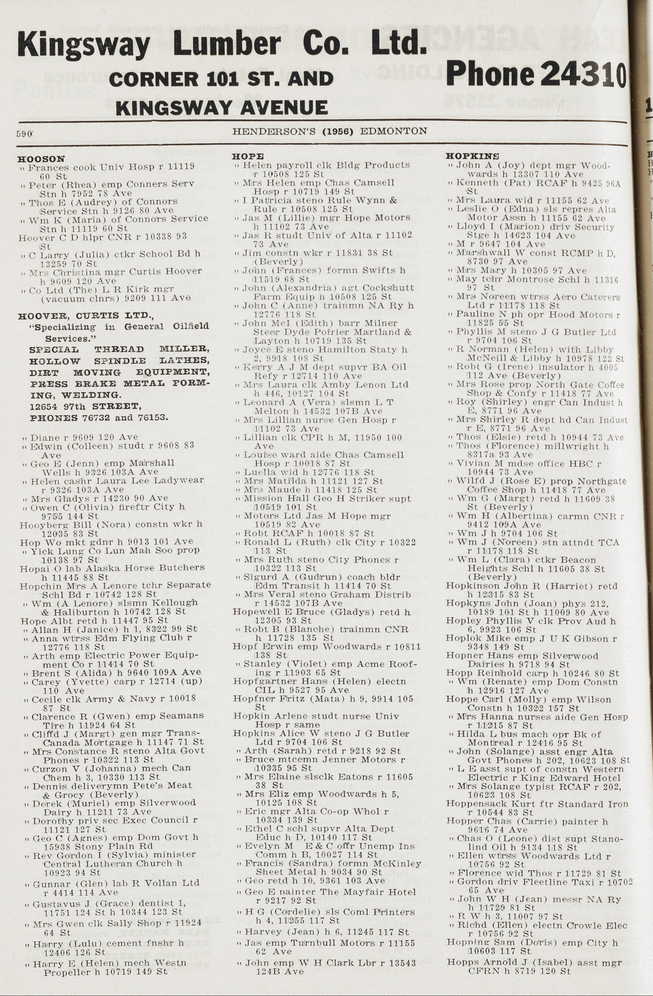 Kingsway Lumber Co. Ltd.
CORNER 101 ST. AND
KINGSWAY AVENUE
Phone 24310
590
HENDERSON'S (1956) EDMONTON
HOOSON
" Frances cook Univ Hosp r 11119
60 St
" Peter (Rhea) emp Conners Serv
Stn h 7952 78 Ave
" Thos E (Audrey) of Connors
Service Stn h 9126 80 Ave
" Wm K (Maria) of Connors Service
Stn h 11119 60 St
Hoover C D hlpr CNR r 10338 93
St
" C Larry (Julia) ctkr School Bd h
13259 70 St
" Mrs Christina mgr Curtis Hoover
h 9609 120 Ave
" Co Ltd (The) L R Kirk mgr
(vacuum clnrs) 9209 111 Ave
HOOVER, CURTIS LTD.,
"Specializing in General Oilfield
Services."
SPECIAL THREAD MILLER,
HOLLOW SPINDLE LATHES,
DIRT MOVING EQUIPMENT,
PRESS BRAKE METAL FORM-
ING, WELDING.
12654 97th STREET,
PHONES 76732 and 76153.
" Diane r 9609 120 Ave
" Edwin (Colleen) studt r 9608 83
Ave
" Geo E (Jenn) emp Marshall
Wells h 9326 103A Ave
" Helen cashr Laura Lee Ladywear
r 9326 103A Ave
" Mrs Gladys r 14230 90 Ave
" Owen C (Olivia) fireftr City h
9755 144 St
Hooyberg Bill (Nora) constn wkr h
12035 83 St
Hop Wo mkt gdnr h 9013 101 Ave
" Yick Lung Co Lun Mah Soo prop
10138 97 St
Hopai O lab Alaska Horse Butchers
h 11445 88 St
Hopchin Mrs A Lenore tchr Separate
Schl Bd r 10742 128 St
" Wm (A Lenore) slsmn Kellough
& Haliburton h 10742 128 St
Hope Albt retd h 11447 95 St
" Allan H (Janice) h 1, 8322 99 St
" Anna wtrss Edm Flying Club r
12776 118 St
" Arth emp Electric Power Equip-
ment Co r 11414 70 St
" Brent S (Alida) h 9640 109A Ave
" Carey (Yvette) carp r 12714 (up)
110 Ave
" Cecile clk Army & Navy r 10018
87 St
" Clarence R (Gwen) emp Seamans
Tire h 11924 64 St
" Cliffd J (Margt) gen mgr Trans-
Canada Mortgage h 11147 71 St
" Mrs Constance R steno Alta Govt
Phones r 10322 113 St
" Curzon V (Johanna) mech Can
Chem h 3, 10330 113 St
" Dennis deliverymn Pete's Meat
& Grocy (Beverly)
" Derek (Muriel) emp Silverwood
Dairy h 11211 73 Ave
" Dorothy priv sec Exec Council r
11121 127 St
" Geo C (Agnes) emp Dom Govt h
15938 Stony Plain Rd
" Rev Gordon I (Sylvia) minister
Central Lutheran Church h
10923 94 St
" Gunnar (Glen) lab R Vollan Ltd
r 4414 114 Ave
" Gustavus J (Grace) dentist 1,
11751 124 St h 10344 123 St
" Mrs Gwen clk Sally Shop r 11924
64 St
" Harry (Lulu) cement fnshr h
12406 126 St
" Harry E (Helen) mech Westn
Propeller h 10719 149 St
HOPE
" Helen payroll clk Bldg Products
r 10508 125 St
" Mrs Helen emp Chas Camsell
Hosp r 10719 149 St
" I Patricia steno Rule Wynn &
Rule r 10508 125 St
" Jas M (Lillie) mgr Hope Motors
h 11102 73 Ave
" Jas R studt Univ of Alta r 11102
73 Ave
" Jim constn wkr r 11831 38 St
(Beverly)
" John (Frances) formn Swifts h
11519 68 St
" John (Alexandria) agt Cockshutt
Farm Equip h 10508 125 St
" John C (Anne) trainmn NA Ry h
12776 118 St
" John McI (Edith) barr Milner
Steer Dyde Poirier Martland &
Layton h 10719 135 St
" Joyce E steno Hamilton Staty h
2, 9918 108 St
" Kerry A J M dept supvr BA Oil
Refy r 12714 110 Ave
" Mrs Laura clk Amby Lenon Ltd
h 446, 10127 104 St
" Leonard A (Vera) slsmn L T
Melton h 14532 107B Ave
" Mrs Lillian nurse Gen Hosp r
11102 73 Ave
" Lillian clk CPR h M, 11950 100
Ave
" Louise ward aide Chas Camsell
Hosp r 10018 87 St
" Luella wid h 12776 118 St
" Mrs Matilda h 11121 127 St
" Mrs Maude h 11418 125 St
" Mission Hall Geo H Striker supt
10519 101 St
" Motors Ltd Jas M Hope mgr
10519 82 Ave
" Robt RCAF h 10018 87 St
" Ronald L (Ruth) clk City r 10322
113 St
" Mrs Ruth steno City Phones r
10322 113 St
" Sigurd A (Gudrun) coach bldr
Edm Transit h 11414 70 St
" Mrs Veral steno Graham Distrib
r 14532 107B Ave
Hopewell E Bruce (Gladys) retd h
12305 93 St
" Robt B (Blanche) trainmn CNR
h 11728 135 St
Hopf Erwin emp Woodwards r 10811
138 St
" Stanley (Violet) emp Acme Roof-
ing r 11903 65 St
Hopfgartner Hans (Helen) electn
CIL h 9527 95 Ave
Hopfner Fritz (Mata) h 9, 9914 105
St
Hopkin Arlene studt nurse Univ
Hosp r same
Hopkins Alice W steno J G Butler
Ltd r 9704 106 St
" Arth (Sarah) retd r 9218 92 St
" Bruce mtcemn Jenner Motors r
10335 95 St
" Mrs Elaine slsclk Eatons r 11605
38 St
" Mrs Eliz emp Woodwards h 5,
10125 108 St
" Eric mgr Alta Co-op Whol r
10334 139 St
" Ethel C schl supvr Alta Dept
Educ h D, 10140 117 St
" Evelyn M E & C offr Unemp Ins
Comm h B, 10027 114 St
" Francis (Sandra) formn McKinley
Sheet Metal h 9034 90 St
" Geo retd h 10, 9361 103 Ave
" Geo E painter The Mayfair Hotel
r 9217 92 St
" H G (Cordelie) sls Coml Printers
h 4, 11255 117 St
" Harvey (Jean) h 6, 11245 117 St
" Jas emp Turnbull Motors r 11155
62 Ave
" John emp W H Clark Lbr r 13543
124B Ave
HOPKINS
" John A (Joy) dept mgr Wood-
wards h 13307 110 Ave
" Kenneth (Pat) RCAF h 9425 96A
St
" Mrs Laura wid r 11155 62 Ave
" Leslie O (Edna) sls repres Alta
Motor Assn h 11155 62 Ave
" Lloyd I (Marion) driv Security
Stge h 14623 104 Ave
" M r 9647 104 Ave
" Marshwall W const RCMP h D,
8730 97 Ave
" Mrs Mary h 10305 97 Ave
" May tchr Montrose Schl h 11316
97 St
" Mrs Noreen wtrss Aero Caterers
Ltd r 11178 118 St
" Pauline N ph opr Hood Motors r
11825 55 St
" Phyllis M steno J G Butler Ltd
r 9704 106 St
" R Norman (Helen) with Libby
McNeill & Libby h 10978 122 St
" Robt G (Irene) insulator h 4005
112 Ave (Beverly)
" Mrs Rose prop North Gate Coffee
Shop & Confy r 11418 77 Ave
" Roy (Shirley) engr Can Indust h
E, 8771 96 Ave
" Mrs Shirley R dept hd Can Indust
r E, 8771 96 Ave
" Thos (Elsie) retd h 10944 73 Ave
" Thos (Florence) millwright h
8317a 93 Ave
" Vivian M mdse office HBC r
10944 73 Ave
" Wilfd J (Rose E) prop Northgate
Coffee Shop h 11418 77 Ave
" Wm G (Margt) retd h 11609 38
St (Beverly)
" Wm H (Albertina) carmn CNR r
9412 109A Ave
" Wm J h 9704 106 St
" Wm J (Noreen) stn attndt TCA
r 11178 118 St
" Wm L (Clara) ctkr Beacon
Heights Schl h 11605 38 St
(Beverly)
Hopkinson John R (Harriet) retd
h 12315 83 St
Hopkyns John (Joan) phys 212,
10189 101 St h 11009 80 Ave
Hopley Phyllis V clk Prov Aud h
6, 9923 106 St
Hoplok Mike emp J U K Gibson r
9348 149 St
Hopner Hans emp Silverwood
Dairies h 9718 94 St
Hopp Reinhold carp h 10246 80 St
" Wm (Renate) emp Dom Constn
h 12916 127 Ave
Hoppe Carl (Molly) emp Wilson
Constn h 10322 157 St
" Mrs Hanna nurses aide Gen Hosp
r 11215 87 St
" Hilda L bus mach opr Bk of
Montreal r 12416 95 St
" John (Solange) asst engr Alta
Govt Phones h 202, 10623 108 St
" L E asst supt of constn Western
Electric r King Edward Hotel
" Mrs Solange typist RCAF r 202,
10623 108 St
Hoppensack Kurt ftr Standard Iron
r 10544 83 St
Hopper Chas (Carrie) painter h
9616 74 Ave
" Chas O (Leone) dist supt Stano-
lind Oil h 9134 118 St
" Ellen wtrss Woodwards Ltd r
10756 92 St
" Florence wid Thos r 11729 81 St
" Gordon driv Fleetline Taxi r 10702
65 Ave
" John W H (Jean) messr NA Ry
h 11729 81 St
" R W h 3, 11007 97 St
" Richd (Ellen) electn Crowle Elec
r 10756 92 St
Hopping Sam (Doris) emp City h
10603 117 St
Hopps Arnold J (Isabel) asst mgr
CFRN h 8719 120 St